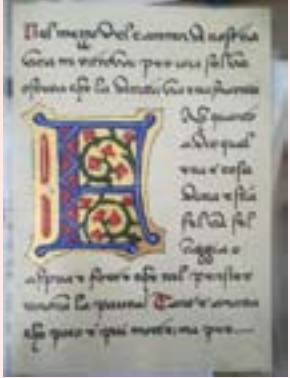 Nel mezzo del cammin di nostra
vita mi ritrovai per una selva
oscura che la diritta via era smarrita
Ahi quanto
a dir qual
era è cosa
dura esta
selva sel
vaggia e
aspra e forte che nel pensier
rinova la paura! Tant'è amara
che poco è più morte; ma per